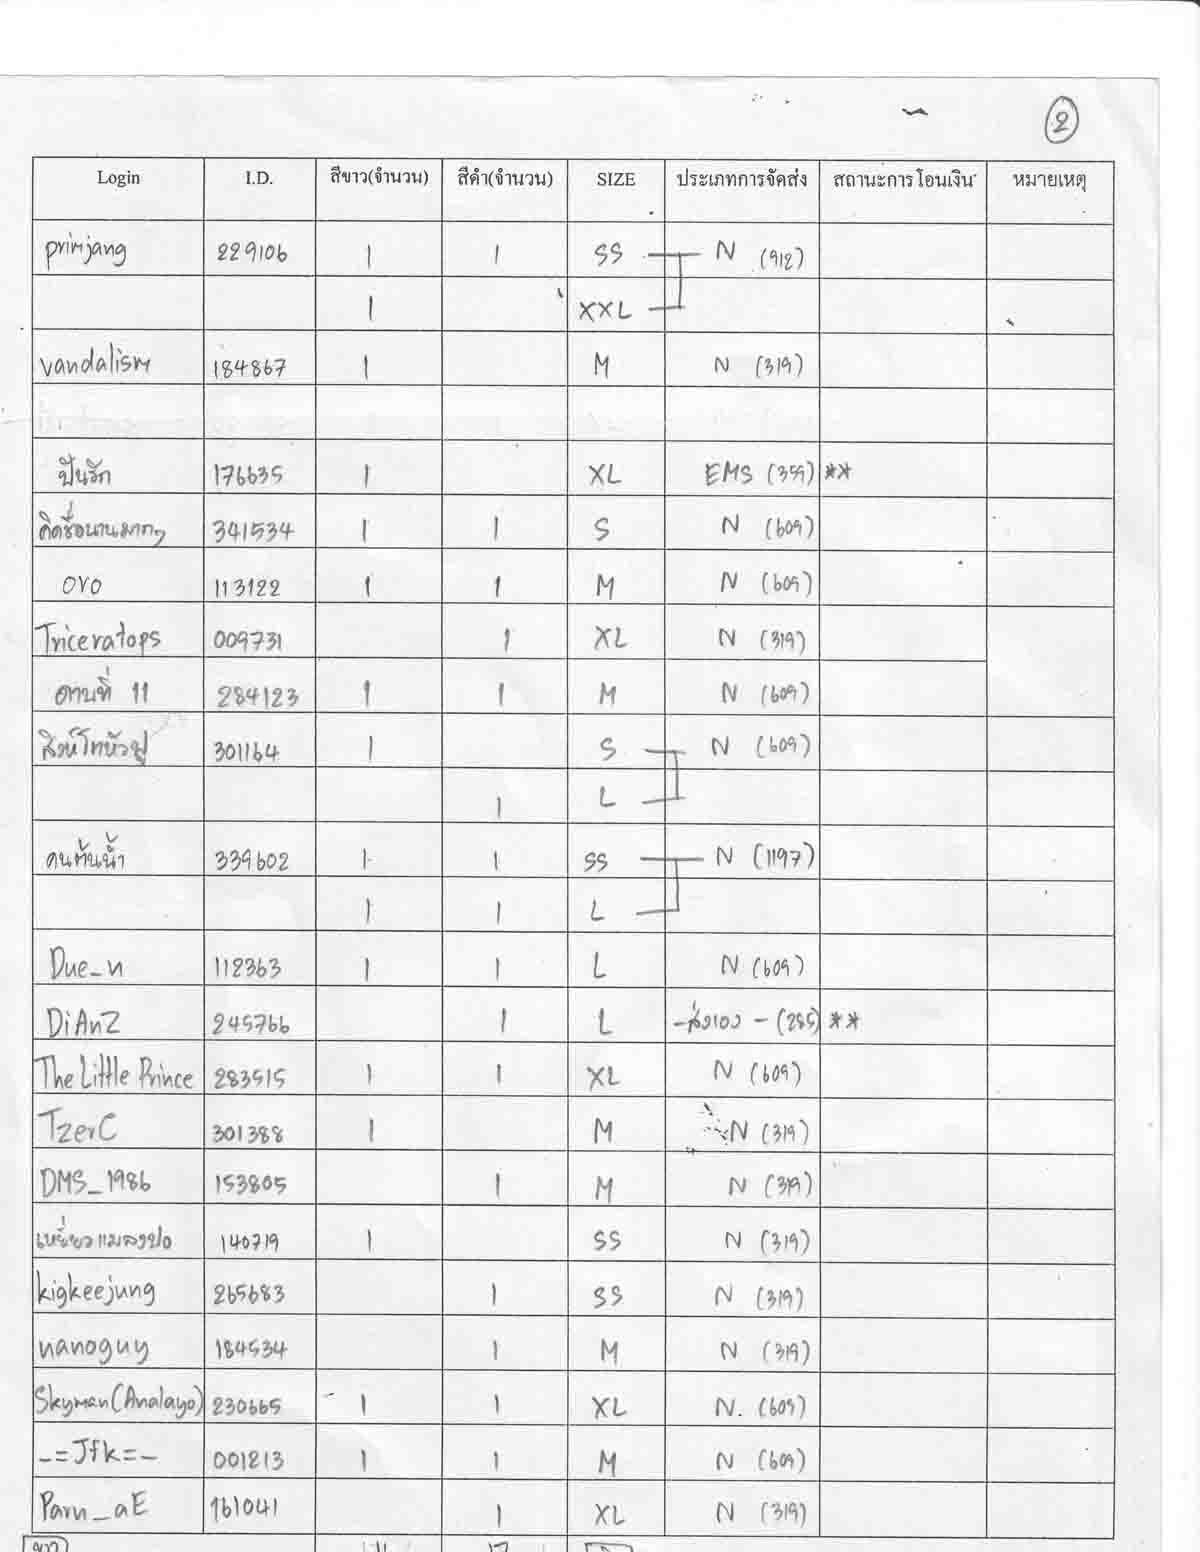 2
Login I.D. สีขาว(จำนวน) สีดำ(จำนวน) SIZE ประเภทการจัดส่ง สถานะการโอนเงิน หมายเหตุ
primjang 229106 1 1 SS N (912)
1 XXL
vandalism 184867 1 M N (319)
ปันรัก 176635 1 XL EMS (359) **
คิดชื่อนานมากๆ 341534 1 1 S N (609)
oro 113122 1 1 M N (609)
Triceratops 009731 1 XL N (319)
ดานที่ 11 284123 1 1 M N (609)
สิงห์โตหัวฟู 301164 1 S N (609)
1 L
คนต้นน้ำ 339602 1 1 SS N (1197)
1 1 L
Due_n 112363 1 1 L N (609)
DiAnZ 245766 1 L -ส่งเอง - (285) **
The Little Prince 283515 1 1 XL N (609)
TzerC 301388 1 M N (319)
DMS_1986 153805 1 M N (319)
เหยี่ยวแมลงปอ 140719 1 SS N (319)
kigkeejung 265683 1 SS N (319)
nanoguy 184534 1 M N (319)
Skyman(Analayo) 230665 1 1 XL N. (609)
-=Jfk=- 001213 1 1 M N (609)
Parn_aE 161041 1 XL N (319)